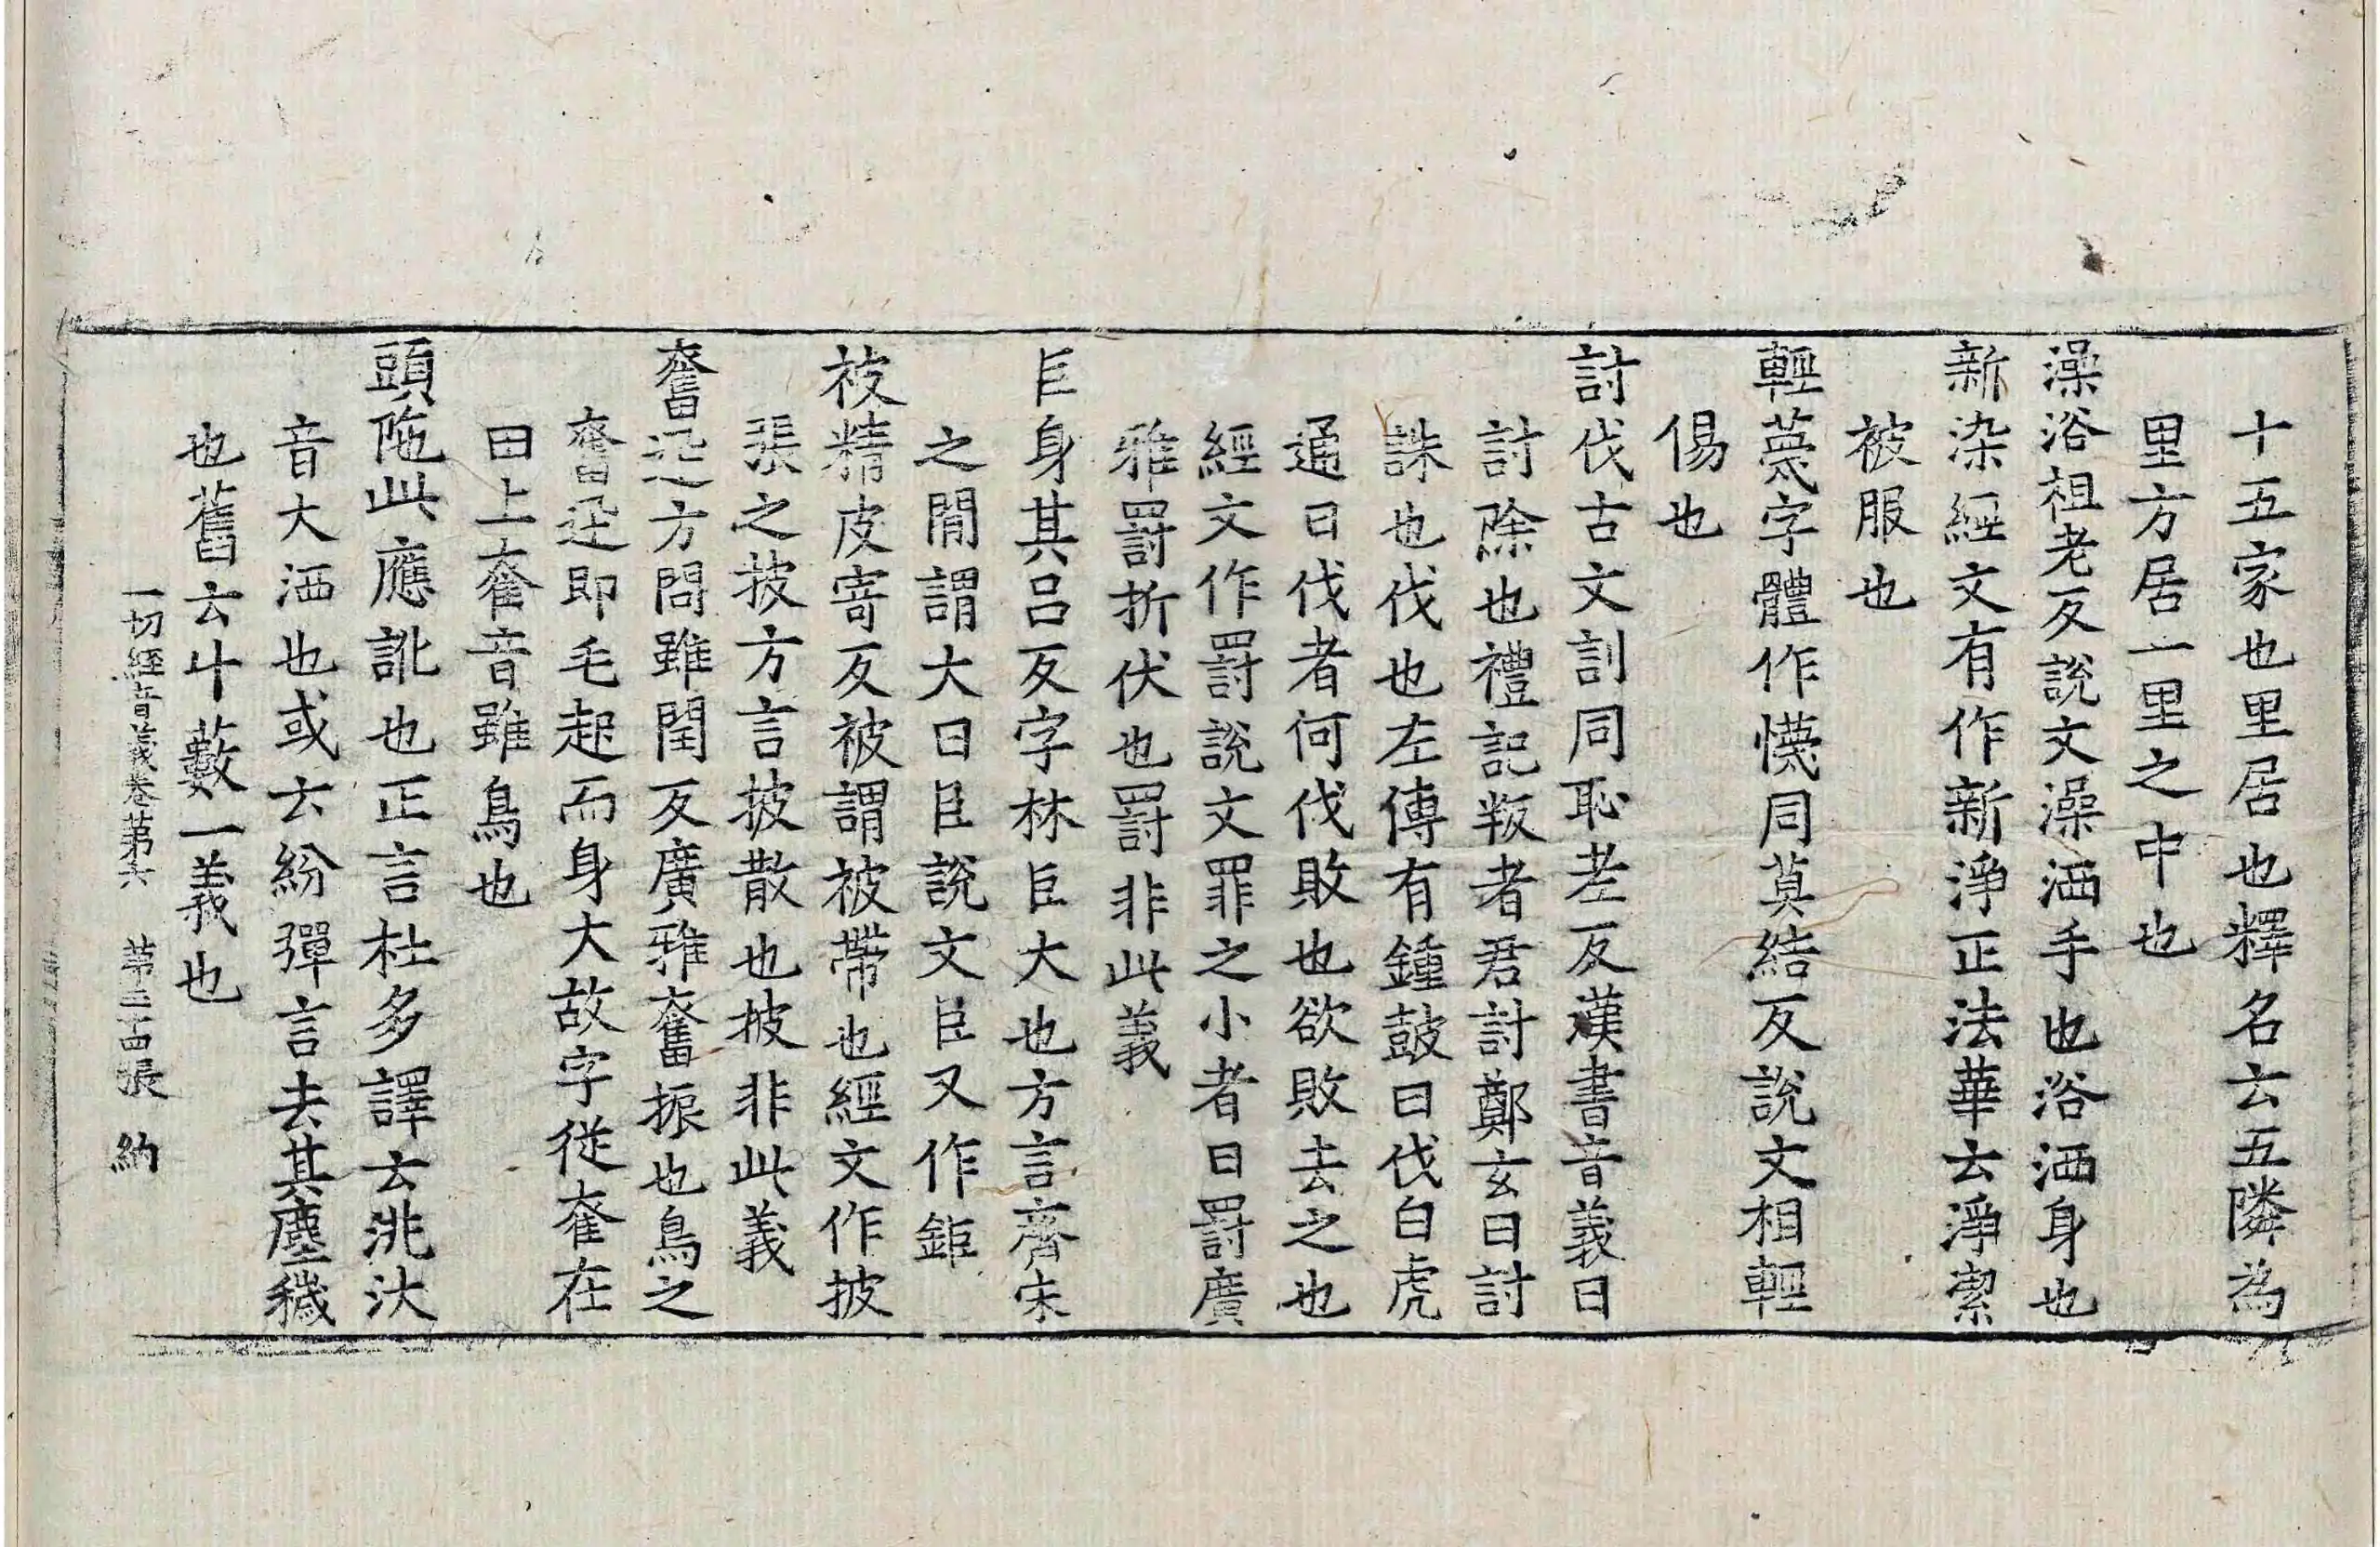 十五家也里居也釋名云五隣為
里方居一里之中也
澡浴祖老反說文澡洒手也浴洒身也
新染經文有作新淨正法華云淨潔
被服也
輕蔑字體作懱同莫結反說文相輕
傷也
討伐古文訓同恥老反漢書音義曰
討除也禮記叛者君討鄭玄曰討
誅也伐也左傳有鍾鼓曰伐白虎
通曰伐者何伐敗也欲敗去之也
經文作罰說文罪之小者曰罰廣
雅罰折伏也罰非此義
巨身其呂反字林巨大也方言齊宋
之間謂大曰巨說文巨又作鉅
被精皮寄反被謂被帶也經文作披
張之披方言披散也披非此義
奮迅方問雖閏反廣雅奮振也鳥之
奮迅即毛起而身大故字從奞在
田上奞音雖鳥也
頭陁此應訛也正言杜多譯云洮汰
音大洒也或云紛彈言去其塵穢
也舊云斗藪一義也
一切經音義卷第六 第二十四張 約